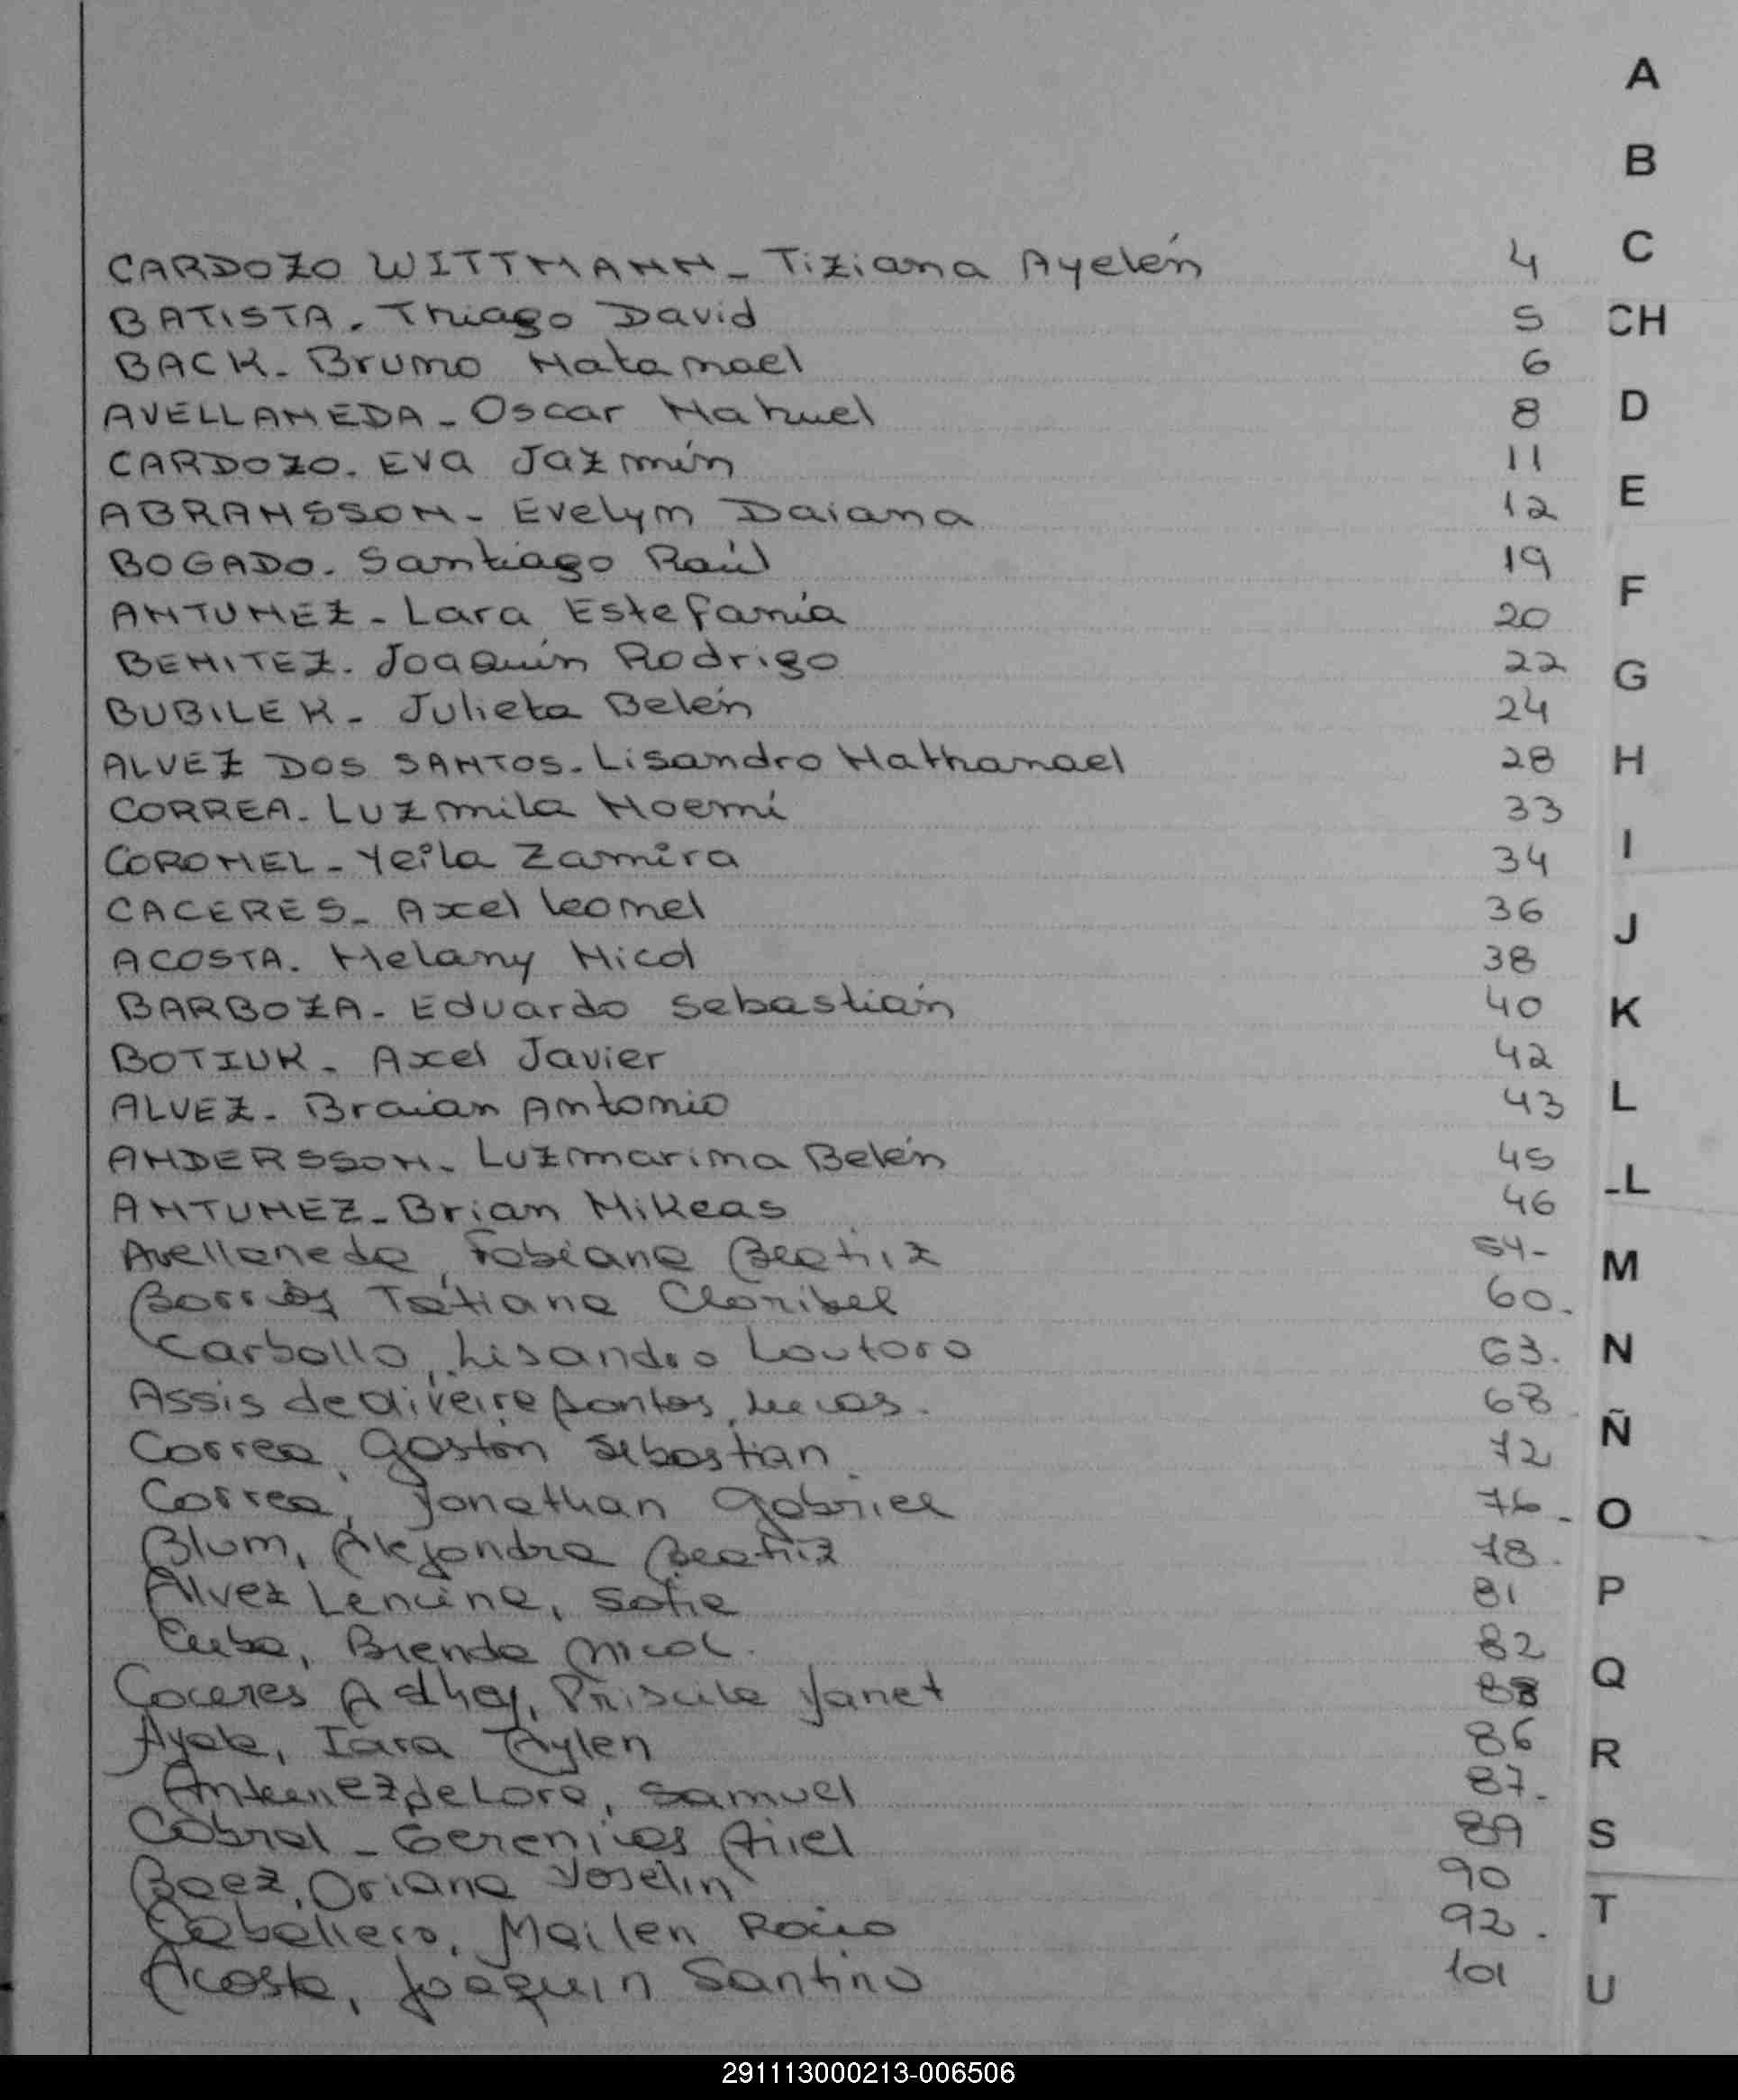 A
B
C
CARDOZO WITTMANN - Tiziana Ayelén 4
BATISTA. Thiago David 5
CH
BACK - Bruno Natanael 6
AVELLANEDA - Oscar Nahuel 8
D
CARDOZO. Eva Jazmín 11
ABRAHSSON - Evelyn Daiana 12
E
BOGADO. Santiago Raúl 19
ANTUNEZ - Lara Estefanía 20
F
BENITEZ. Joaquín Rodrigo 22
G
BUBILEK - Julieta Belén 24
ALVEZ DOS SANTOS - Lisandro Nathanael 28
H
CORREA. Luzmila Noemí 33
CORONEL - Yeila Zamira 34
I
CACERES - Axel Leonel 36
J
ACOSTA. Melany Nicol 38
BARBOZA - Eduardo Sebastián 40
K
BOTIUK - Axel Javier 42
ALVEZ - Braian Antonio 43
L
ANDERSSON - Luzmarina Belén 45
LL
ANTUNEZ - Brian Mikeas 46
Avellaneda, Fabiana Beatriz 54-
M
Borrás Tatiana Claribel 60.
Carballo, Lisandro Lautaro 63.
N
Assis de Oliveira Santos, Lucas. 68
Correa, Gastón Sebastian 72
Ñ
Correa, Jonathan Gabriel 76-
O
Blum, Alejandra Beatriz 78.
Alvez Lencina, Sofia 81
P
Cuba, Brenda Nicol. 82
Q
Caceres Priscila Janet 83
Ayala, Iara Aylen 86
R
Antunez de Lara, Samuel 87.
Cabral - Geremias Ariel 89
S
Baez, Oriana Yoselin 90
T
Caballero, Mailen Rocio 92.
Acosta, Joaquin Santino 101
U
291113000213-006506